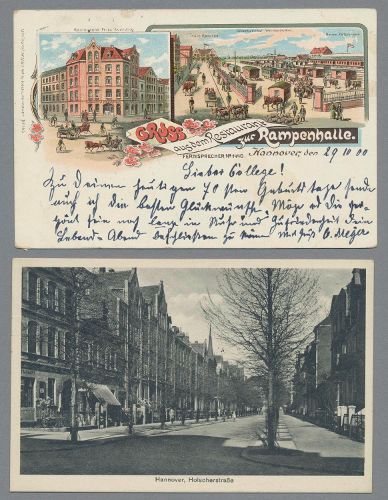 GRUSS
aus dem Restaurant
zur Rampenhalle.
FERNSPRECHER Nº 1440.
Hannover, den 29 10 00
Lieber College!
Zu Deinem heutigen 70sten Geburtstage sende
auch ich die besten Glückwünsche. Möge es Dir ver-
gönnt sein noch lange in Ruhe und Zufriedenheit Dein
Lebens Abend beschließen zu können
Hannover, Holscherstraße